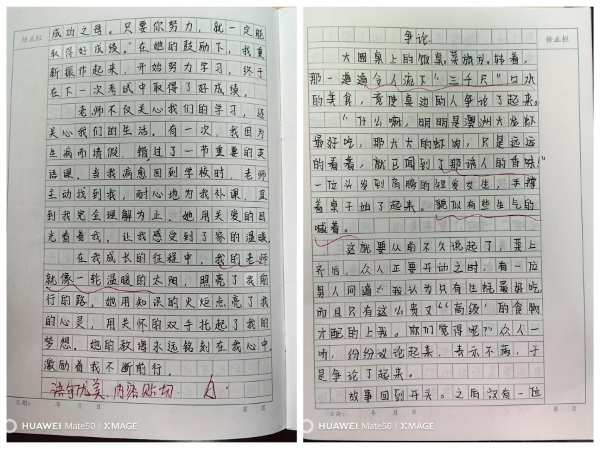 修正栏
成功之母。只要你努力，就一定能
取得好成绩。"在她的鼓励下，我重
新振作起来，开始努力学习，终于
在下一次考试中取得了好成绩。
老师不仅关心我们的学习，还
关心我们的生活。有一次，我因为
生病而请假，错过了一节重要的英
语课。当我病愈回到学校时，老师
主动找到我，耐心地为我补课，直
到我完全理解为止。她用关爱的目
光看着我，让我感受到了家的温暖
在我成长的征程中，我的老师
就像一轮温暖的太阳，照亮了我前
行的路。她用知识的火炬点亮了我
的心灵，用关怀的双手托起了我的
梦想。她的教诲永远铭刻在我心中，
激励着我不断前行。
语句优美，内容贴切
日期： 年 月 日 第 页
HUAWEI Mate50 | XMAGE
争论
修正栏
大圆桌上的饭桌，菜旋方转着，
那一遍遍令人流下"三千尺"口水
的美食，竟使桌边的人争论了起来。
"什么嘛，明明是澳洲大龙虾
最好吃，那大大的虾肉，只是远远
的看着，就已闻到了那诱人的香味！"
一位头发到肩膀的短发女生，手撑
着桌子站了起来。貌似有些生气的
喊着。
这就要从前不久说起了，菜上
齐后，众人正要开动之时，有一位
男人问道："我认为只有生蚝最好吃，
而且只有这么贵又"高级"的食物
才配的上我。你们觉得呢？"众人一
听，纷纷议论起来，表示不满，于
是争论了起来。
故事回到开头。之后又有一位
日期： 年 月 日 第 页
HUAWEI Mate50 | XMAGE